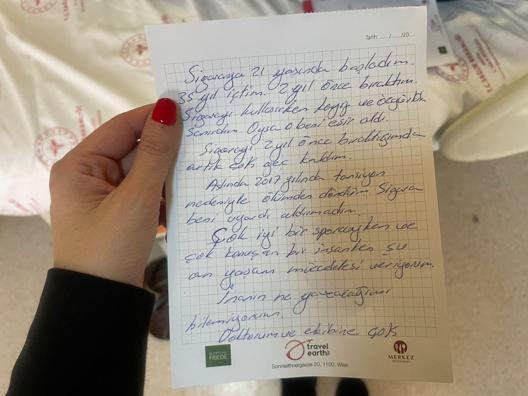 Tarih ..../..../20...
Sigaraya 21 yaşında başladım.
35 yıl içtim. 2 yıl önce bıraktım.
Sigarayı kullanırken keyif ve özgürlük
sanırdım. Oysa o beni esir aldı.
Sigarayı 2 yıl önce bıraktığımda
artık çok geç kaldım.
Aslında 2017 yılında tansiyon
nedeniyle ölümden döndüm Sigara
beni uyardı aldırmadım.
Çok iyi bir sporcuyken ve
çok konuşan bir insanken şu
an yaşam mücadelesi veriyorum.
İnanın ne yapacağımı
bilemiyorum.
Doktorum ve ekibine çok
FRIEDE
travel
earth
MERKEZ
Sonnleithnergasse 20, 1100, Wien